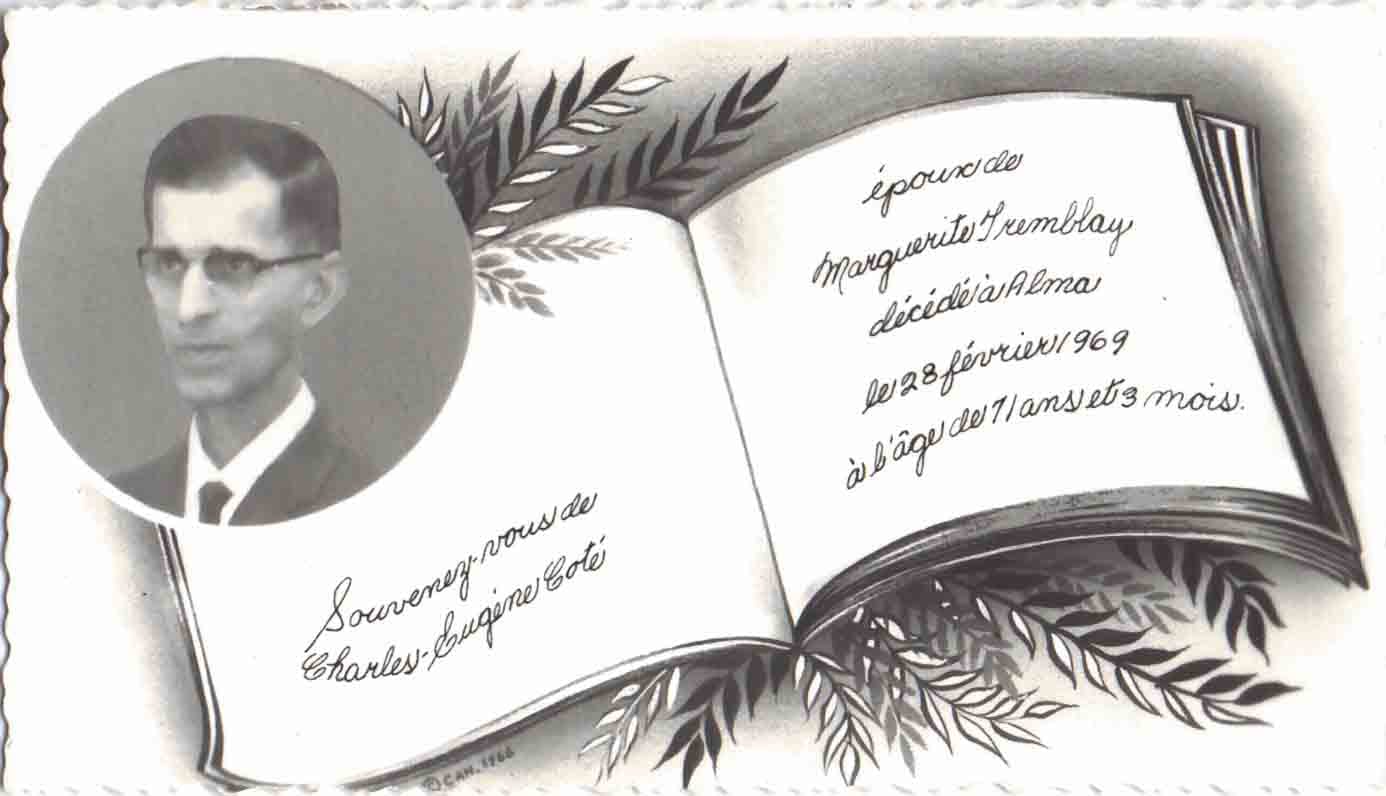 Souvenez-vous de
Charles-Eugène Coté
époux de
Marguerite Tremblay
décédé à Alma
le 28 février 1969
à l'âge de 71 ans et 3 mois.
© CAN. 1966